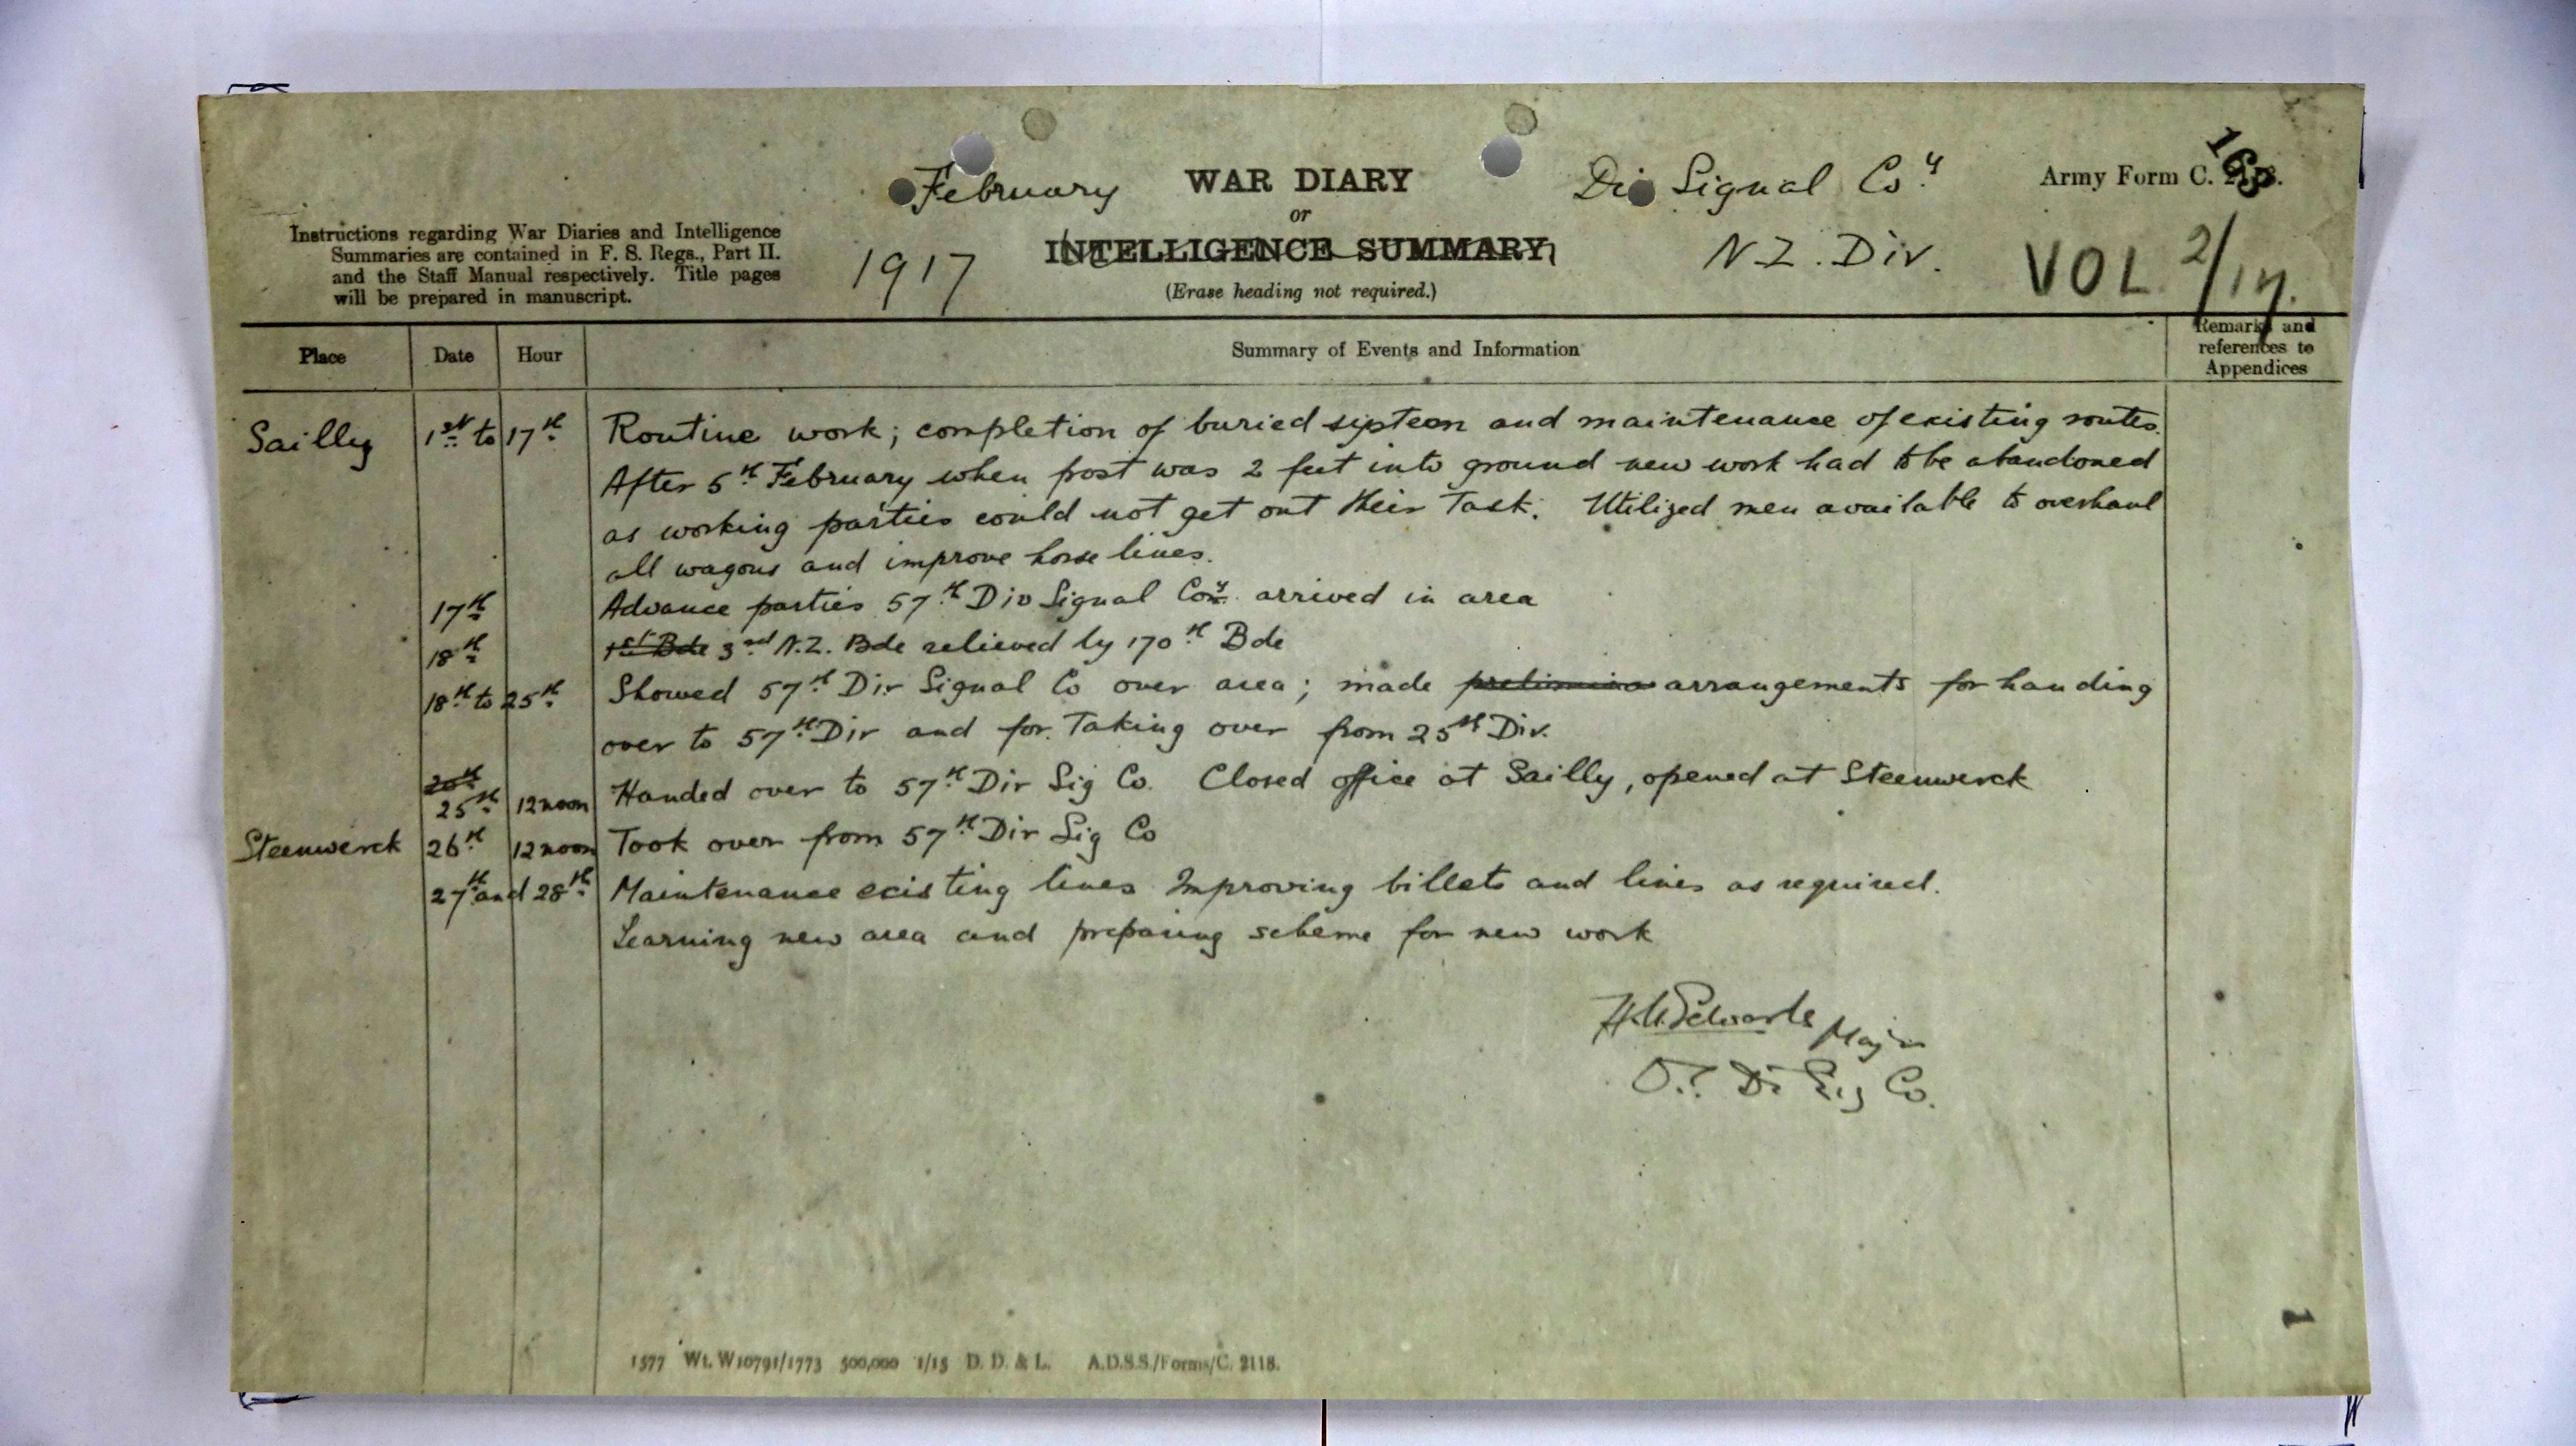 February WAR DIARY Div Signal Coy Army Form C. 2118.
163
or
Instructions regarding War Diaries and Intelligence
Summaries are contained in F. S. Regs., Part II.
and the Staff Manual respectively. Title pages
will be prepared in manuscript.
1917 INTELLIGENCE SUMMARY N.Z. Div. VOL 2/17.
(Erase heading not required.)
Place Date Hour Summary of Events and Information Remarks and
references to
Appendices
Sailly 1st to 17th Routine work; completion of buried system and maintenance of existing routes.
After 5th February when frost was 2 feet into ground new work had to be abandoned
as working parties could not get out their task. Utilized men available to overhaul
all wagons and improve horse lines.
17th Advance parties 57th Div Signal Coy. arrived in area
18th 1st Bde 3rd N.Z. Bde relieved by 170th Bde
18th to 25th Showed 57th Div Signal Co over area; made arrangements for handing
over to 57th Div and for taking over from 25th Div.
20th
25th 12 noon Handed over to 57th Div Sig Co. Closed office at Sailly, opened at Steenwerck
Steenwerck 26th 12 noon Took over from 57th Div Sig Co
27th and 28th Maintenance existing lines Improving billets and lines as required.
Learning new area and preparing scheme for new work
Major
O.C Div Sig Co.
1
1577 Wt. W10791/1773 500,000 1/15 D. D. & L. A.D.S.S./Forms/C. 2118.